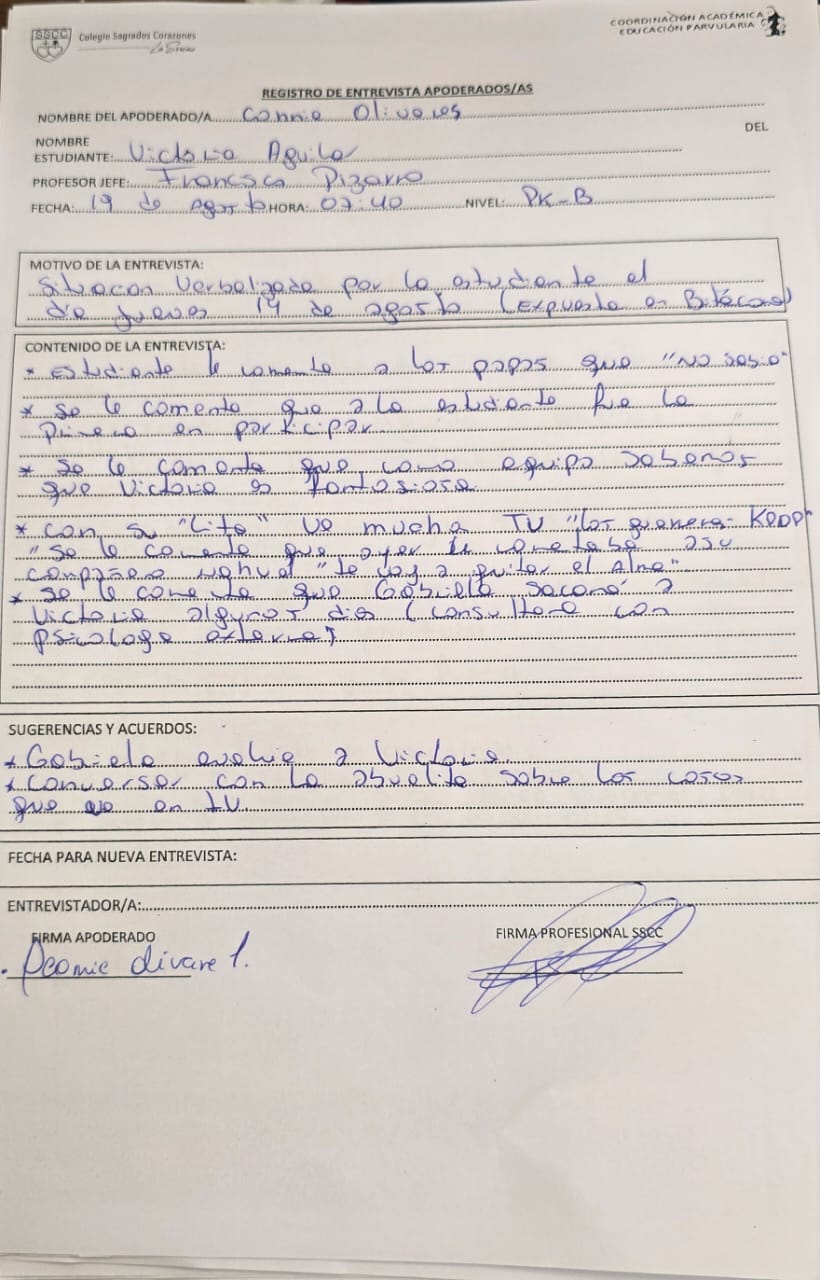 SSCC
Colegio Sagrados Corazones
La Serena
COORDINACIÓN ACADÉMICA
EDUCACIÓN PARVULARIA
REGISTRO DE ENTREVISTA APODERADOS/AS
NOMBRE DEL APODERADO/A Connie Olivares
DEL
NOMBRE
ESTUDIANTE: Victoria Aguilar
PROFESOR JEFE: Francisca Pizarro
FECHA: 19 de Agosto HORA: 07:40 NIVEL: PK-B
MOTIVO DE LA ENTREVISTA:
Situacon Verbalizada por la estudiante el
día jueves 14 de agosto (Expuesta en Bitácora)
CONTENIDO DE LA ENTREVISTA:
* Estudiante le comenta a los papas que "no sabia"
* Se le comenta que a la estudiante fue la
Primera en participar
* Se le comenta que como equipo sabemos
que Victoria es fantasiosa
* con su "Lita" ve mucha TV "las guerreras KPOP"
" Se le comenta que ayer le comentaba a su
compañero "te voy a quitar el Alma"
* Se le comenta que Gabriela sacará a
Victoria algunos dias (consultora con
psicologa externa)
SUGERENCIAS Y ACUERDOS:
* Gabiela evalue a Victoria.
* Conversar con la abuelita sobre las cosas
que ve en TV.
FECHA PARA NUEVA ENTREVISTA:
ENTREVISTADOR/A:
FIRMA APODERADO
FIRMA PROFESIONAL SSCC